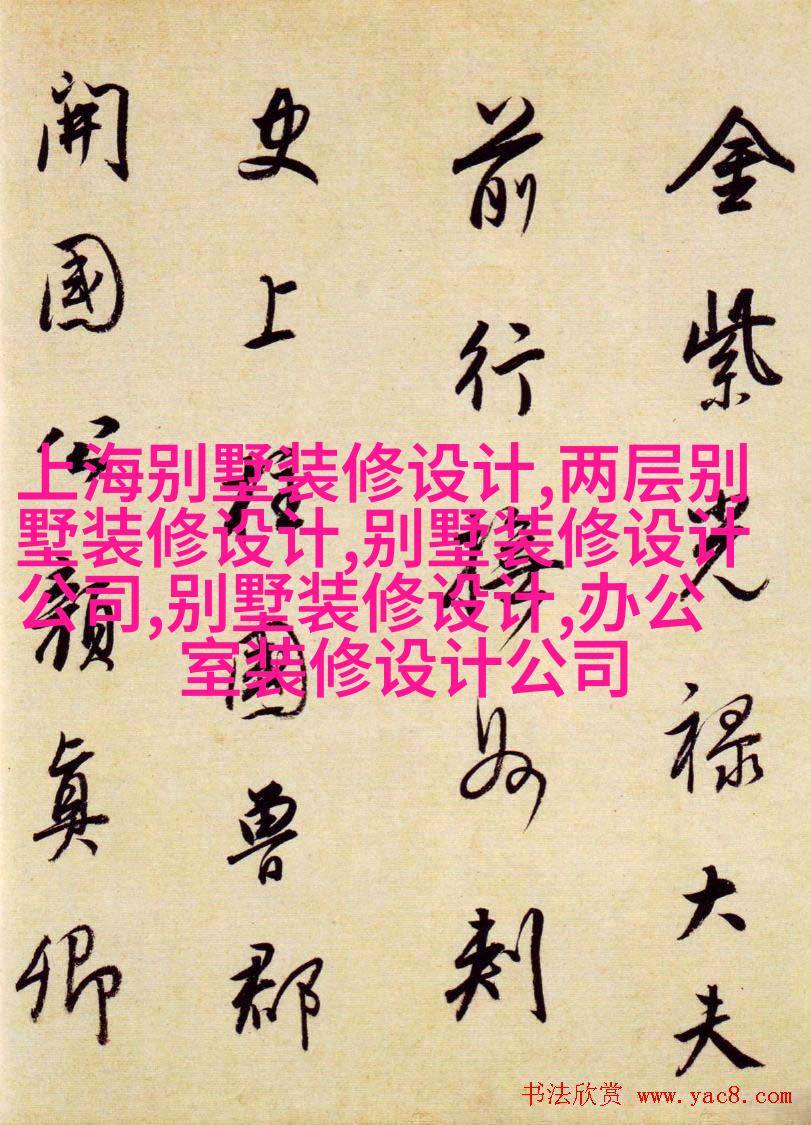 金紫光禄大夫
前行州刺
史上國魯郡
開國公顔真卿
上海别墅装修设计,两层别
墅装修设计,别墅装修设计
公司,别墅装修设计,办公
室装修设计公司
书法欣赏 www.yac8.com